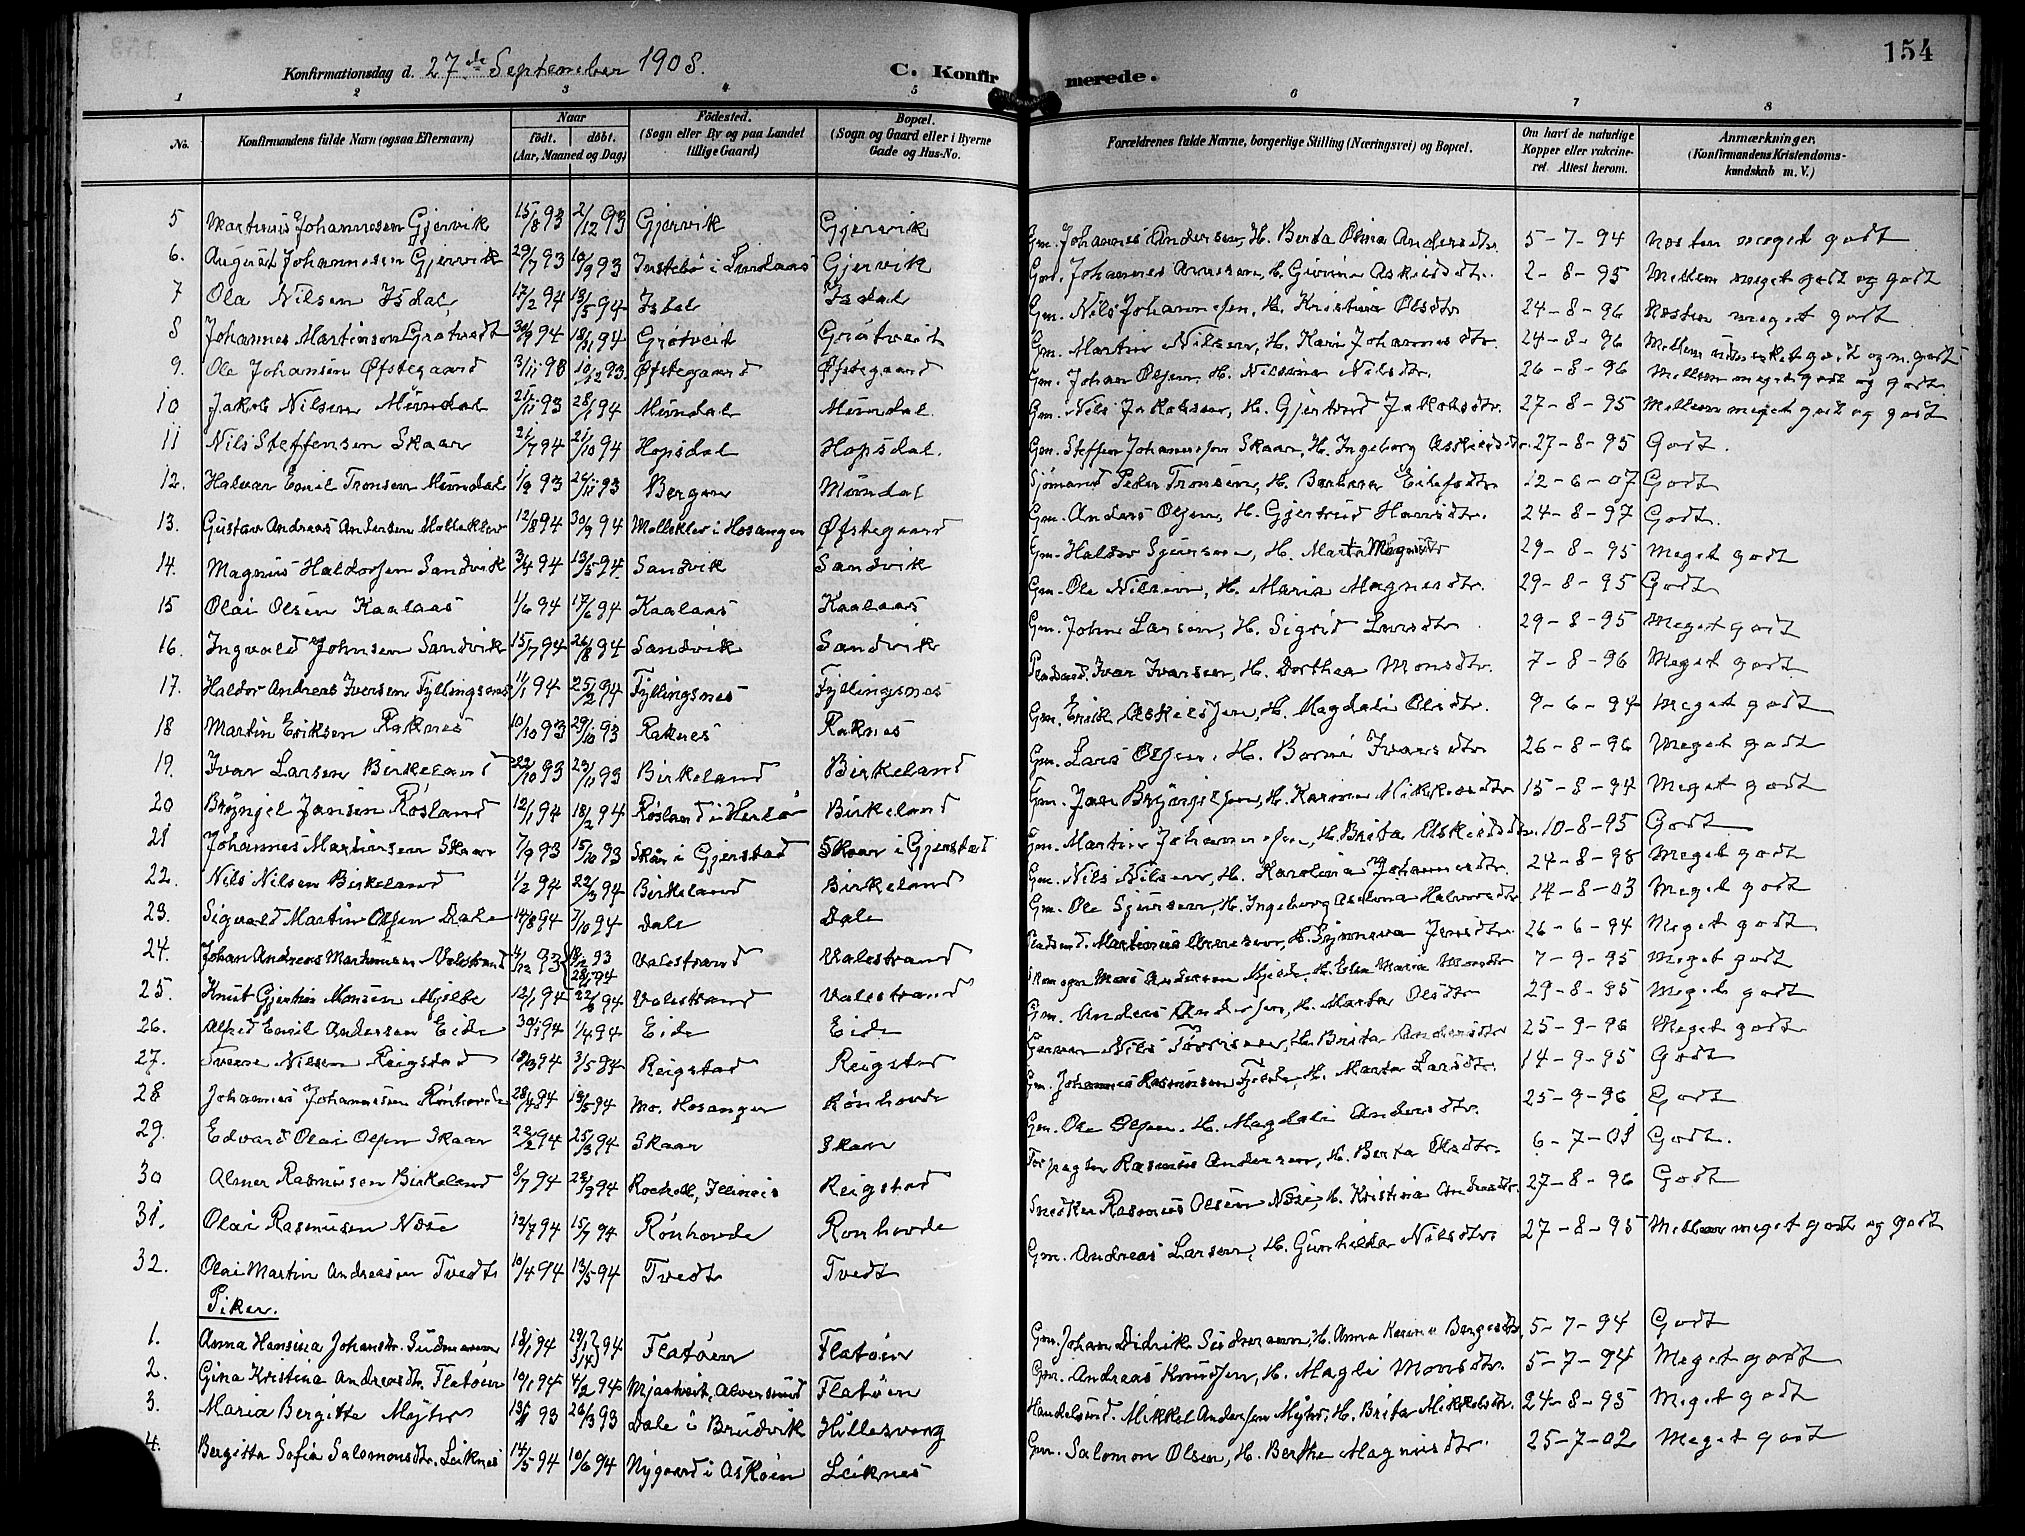 154
Konfirmationsdag d. 27de September 1908. C. Konfirmerede.
1 2 3 4 5 6 7 8
No. Konfirmandens fulde Navn (ogsaa Efternavn) Naar født. døbt. (Aar, Maaned og Dag) Fødested. (Sogn eller By og paa Landet tillige Gaard) Bopæl. (Sogn og Gaard eller i Byerne Gade og Hus-No. Forældrenes fulde Navne, borgerlige Stilling (Næringsvei) og Bopæl. Om havt de naturlige Kopper eller vakcineret. Attest herom. Anmærkninger. (Konfirmandens Kristendomskundskab m. V.)
5 Martinus Johannesen Gjervik 15/8 93 2/12 93 Gjervik Gjervik Gm. Johannes Andersen, H. Berta Olina Andersdtr. 5-7-94 Næsten meget godt
6. August Johannesen Gjervik 29/7 93 10/9 93 i Lindaas Gjervik Johannes H. 2-8-95 Mellem meget godt og godt
7 Ola Nilsen Isdal 17/2 94 13/5 94 Isdal Isdal Gm. Nils Johannessen, H. Kristina Olsdtr 24-8-96 Næsten meget godt
8 Johannes Martinson Grotveit 94 94 Grotveit Grotveit Gm. Martin Nilsen, H. Kari Johannesdtr. 24-8-96 Mellem og m. godt
9. Ole Johansen Øfstegaard 3/11 93 10/12 93. Øfstegaard Øfstegaard Gm. Johan Olsen, H. Nilsina Nilsdtr. 26-8-96 Mellem meget godt og godt.
10 Jakob Nilsen Mundal 21/11 93 28/1 94 Mundal Mundal. Gm. Nils Jakobsen, H. Gjertrud Jakobsdtr. 27-8-95 Mellem meget godt og godt
11 Nils Steffensen Skaar 21/7 94 21/10 94 Hopsdal Hopsdal. Gm. Steffen Johannessen Skaar, H. Ingeborg Askildsdtr. 27-8-95 Godt.
12. Halvar Emil Tronsen Mundal 1/9 93 26/11 93 Bergen Mundal Sjømand Peder Tronsen, H. Barbara 12-6-07 Godt
13. Gustav Andreas Andersen Molleklev 12/8 94 30/9 94 Molleklev i Hosanger Øfstegaard Gm. Anders Olsen, H. Gjertrud Hansdtr. 24-8-97 Godt.
14. Magnus Haldorsen Sandvik 3/4 94 13/5 94. Sandvik Sandvik Gm. Haldor Sjursen, H. Marta 29-8-95 Meget godt
15 Olai Olsen Kaalaas 1/6 94 17/6 94 Kaalaas Kaalaas Gm. Ole Nilsen, H. Maria Magnesdtr. 29-8-95 Godt
16. Ingvald Johnsen Sandvik 15/7 94 26/8 94 Sandvik Sandvik Gm. John Larsen, H. Sigrid Larsdtr 29-8-95 Meget godt
17. Haldor Andreas Iversen Fyllingsnes 11/1 94 25/2 94 Fyllingsnes Fyllingsnes Pladsmd. Ivar Ivarsen, H. Dorthea Monsdtr. 7-8-96 Meget godt
18 Martin Eriksen Raknes 10/10 93 29/10 93 Raknes Raknes Gm. Erik Askildsen, H. Magdali Olsdtr. 9-6-94 Meget godt
19. Ivar Larsen Birkeland 22/10 93 23/11 93 Birkeland Birkeland Gm. Lars Olsen, H. Borni Ivarsdtr 26-8-96 Meget godt
20 Brynjel Jansen Røsland 12/1 94 18/2 94 Røsland i Herlø Birkeland Gm. Jan Brynjelsen, H. Karina Mikkelsdtr 15-8-94 Meget godt
21 Johannes Martinsen Skaar 7/9 93 15/10 93 Skar i Gjerstad Skaar i Gjerstad Gm. Martin Johannessen, H. Brita Askildsdtr. 10-8-95 Godt
22. Nils Nilsen Birkeland 1/2 94 22/3 94 Birkeland Birkeland Gm. Nils Nilsen, H. Karolina Johannesdtr. 24-8-98 Meget godt
23. Sigvald Martin Olsen Dale 14/8 94 7/10 94 Dale Dale Gm. Ole Sjursen, H. Ingeborg Halvorsdtr 14-8-03 Meget godt
24. Johan Andreas Martinusen Valestrand 4/12 93 93 28/1 94 Valestrand Valestrand Pladsmd. Martinus Arnesen, H. Synneva Jensdtr. 26-6-94 Meget godt
25. Knut Gjertin Monsen Mjelde 12/1 94 22/6 94 Valestrand Valestrand Mons Andersen Mjelde, H. Elen Maria Monsdtr 7-9-95 Meget godt
26. Alfred Emil Andersen Eide 30/1 94 1/4 94 Eide Eide Gm. Anders Andersen, H. Marta Olsdtr 29-8-95 Meget godt
27. Sverre Nilsen Reigstad 18/3 94 3/5 94 Reigstad Reigstad Nils H. Brita Andersdtr 25-9-96 Meget godt
28 Johannes Johannesen Rønhovde 28/4 94 13/5 94 Mo. Hosanger Rønhovde Gm. Johannes Rasmussen H. Marta Larsdtr. 14-9-95 Godt
29. Edvard Olai Olsen Skaar 22/2 94 25/3 94 Skaar Skaar Gm. Ole Olsen, H. Magdali Andersdtr. 25-9-96 Godt
30 Almer Rasmusen Birkeland 8/7 94 94 Illinois Reigstad Forpagter Rasmus Andersen, H. Berta Olsdtr. 6-7-08 Godt.
31. Olai Rasmusen Næse 13/7 94 15/7 94 Rønhovde Rønhovde Snedker Rasmus Olsen Næse, H. Kristina Andersdtr. 27-8-96 Godt
32. Olai Martin Andreasen Tvedt 10/4 94 13/5 94 Tvedt Tvedt Gm. Andreas Larsen, H. Gunhilda Nilsdtr. 27-8-95 Mellem meget godt og godt
Piker.
1. Anna Hansina Johansdtr. Sudmann 94 94 Flatøen Flatøen Gm. Johan Didrik Sudmann, H. Anna Karina 5-7-94 Godt
2. Gina Kristina Andreasdtr. Flatøen 10/1 94 4/2 94 Mjaatveit, Alversund Flatøen Gm. Andreas Knudsen, H. Magli Monsdtr. 5-7-94 Meget godt
3. Maria Bergitte Myhr 93 26/3 93 Dale i Brudvik Hillesvaag Handelsmd. Mikkel Andersen Myhr, H. Brita Mikkelsdtr. 24-8-95 Meget godt
4. Bergitta Sofia Salomonsdtr. Leiknes 14/5 94 10/6 94 Nygaard i Askøen Leiknes Gm. Salomon Olsen, H. Berthe Magnusdtr. 25-7-02 Meget godt